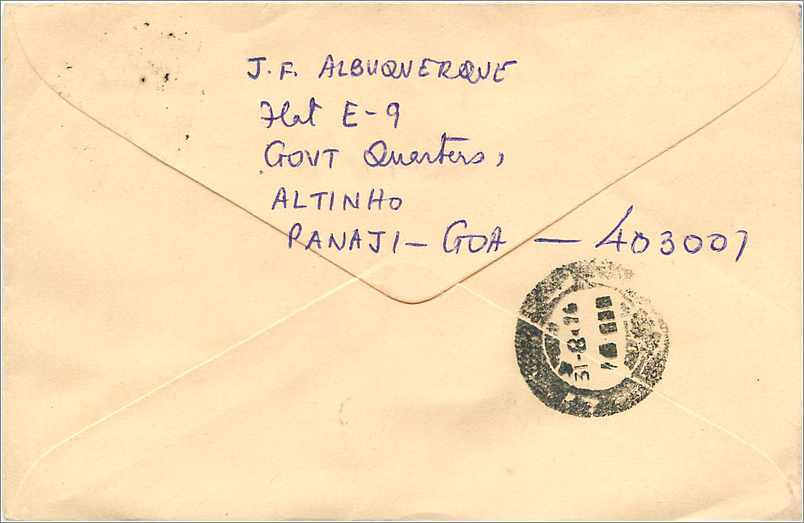 J. F. ALBUQUERQUE
Flat E-9
GOVT Quarters,
ALTINHO
PANAJI - GOA - 403001
31-8-76